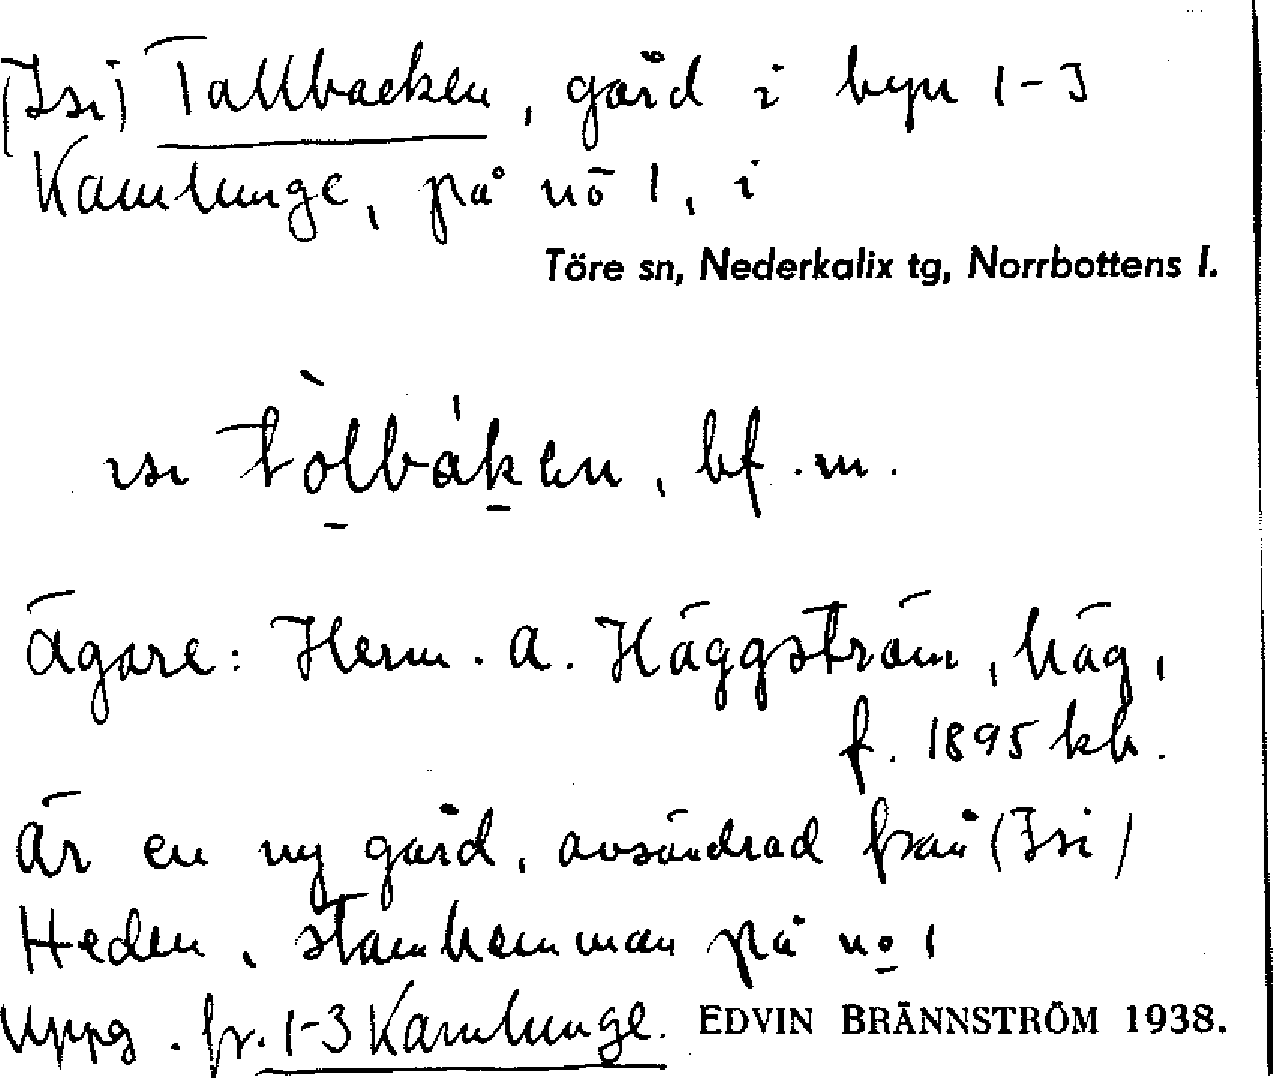 (Isi) Tallbacken, gård i byn 1-3
Kamlunge, på nō 1, i
Töre sn, Nederkalix tg, Norrbottens l.
ısı tòlbák en, bf. m.
Ägare: Herm. A. Häggström, häg,
f. 1895 kb.
Är en ny gård, avsöndrad från (Isi)
Heden, stamhemman på no 1
Uppg. fr. 1-3 Kamlunge. EDVIN BRÄNNSTRÖM 1938.